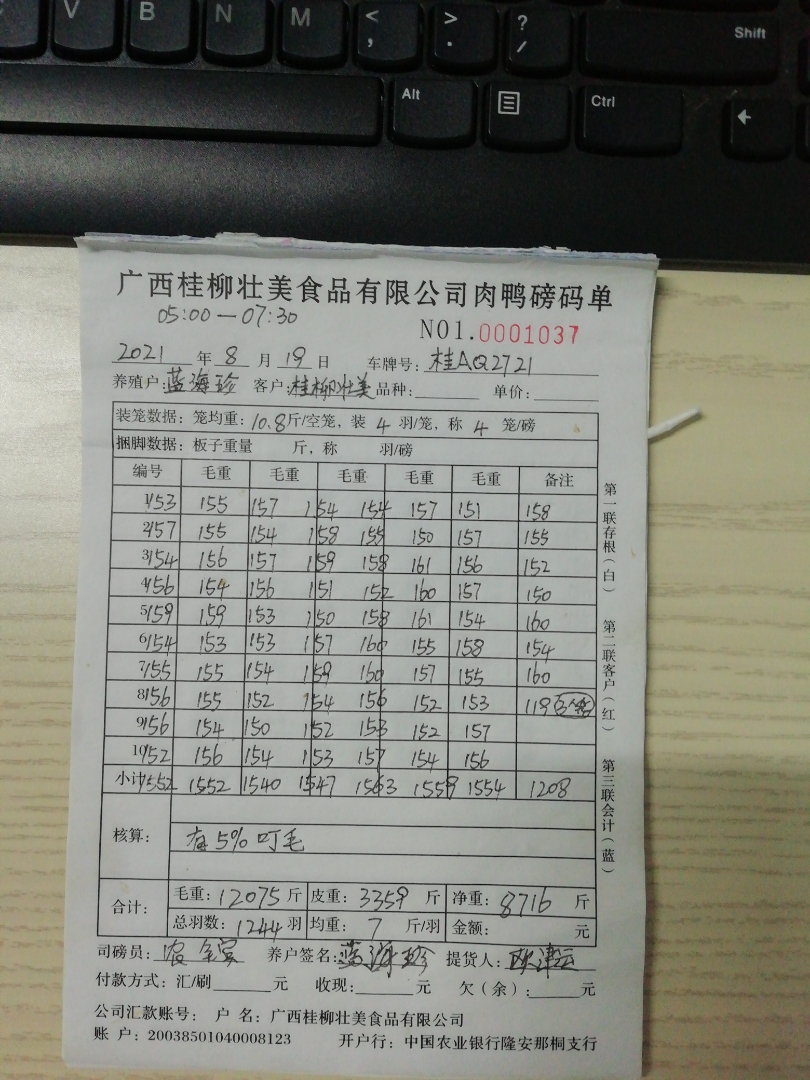 V B N M < , > . ? / Shift
Alt Ctrl
广西桂柳壮美食品有限公司肉鸭磅码单
05:00—07:30
NO1.0001037
2021年8月19日 车牌号:桂AQ2721
养殖户:蓝海珍 客户:桂柳壮美 品种: 单价:
装笼数据:笼均重:10.8斤/空笼,装4羽/笼,称4笼/磅
捆脚数据:板子重量 斤,称 羽/磅
编号 毛重 毛重 毛重 毛重 毛重 备注
1 153 155 157 154 154 157 151 158
2 157 155 154 158 155 150 157 155
3 154 156 157 159 158 161 156 152
4 156 154 156 151 152 160 157 150
5 159 159 153 150 158 161 154 160
6 154 153 153 157 160 155 158 154
7 155 155 154 159 160 157 155 160
8 156 155 152 154 156 152 153 119
9 156 154 150 152 153 152 157
10 152 156 154 153 157 154 156
小计 1552 1552 1540 1547 1563 1559 1554 1208
核算: 有5%叮毛
合计: 毛重:12075斤 皮重:3359斤 净重:8716斤
总羽数:1244羽 均重:7斤/羽 金额: 元
司磅员: 养户签名:蓝海珍 提货人:
付款方式:汇/刷 元 收现: 元 欠(余): 元
公司汇款账号: 户 名:广西桂柳壮美食品有限公司
账 户:20038501040008123 开户行:中国农业银行隆安那桐支行
第一联存根(白)
第二联客户(红)
第三联会计(蓝)